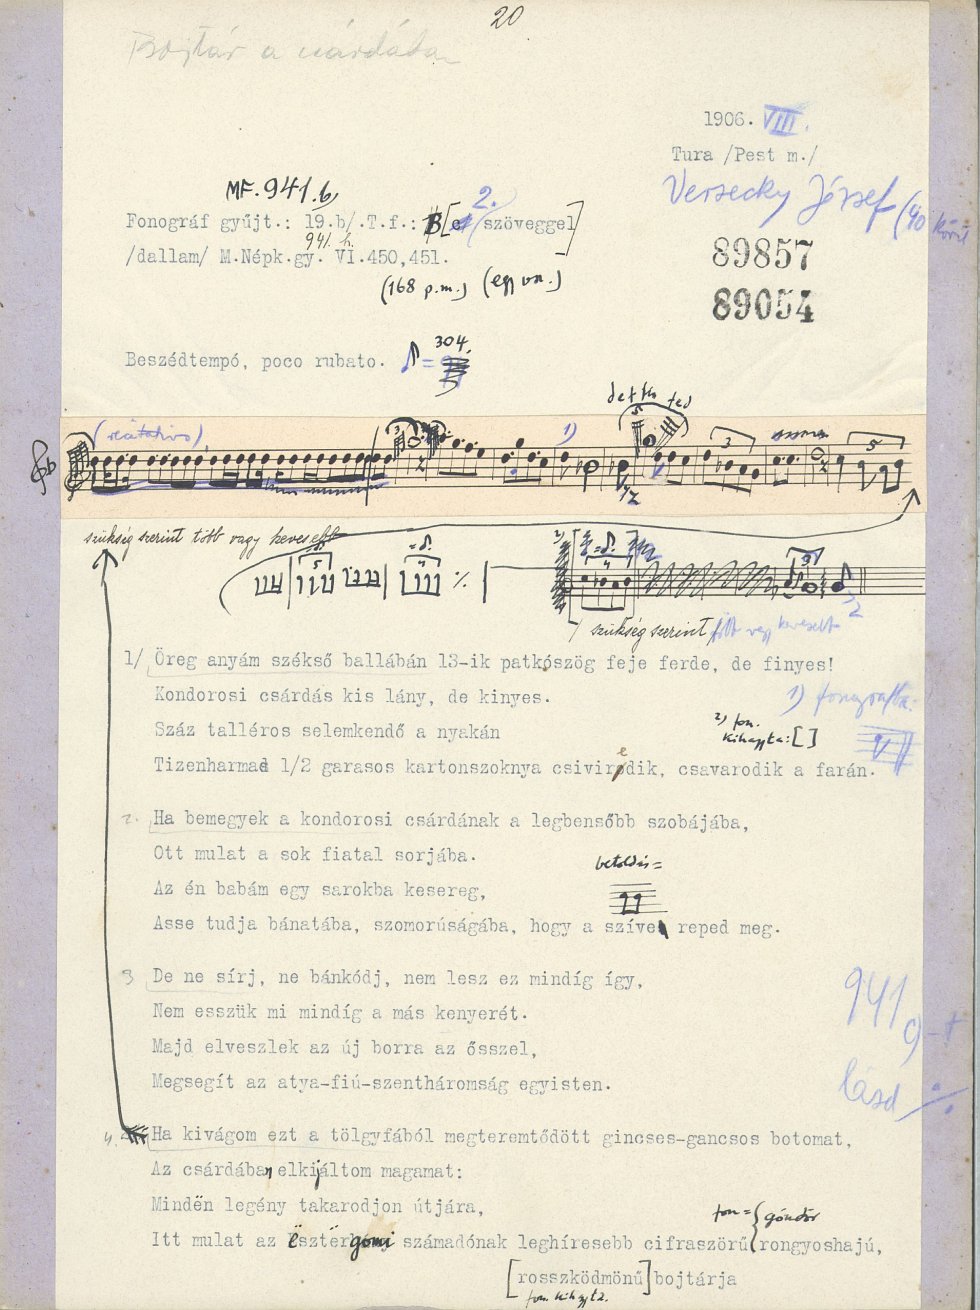 20
Bojtár a csárdába
1906. VIII.
Tura /Pest m./
Versecky József (40 körül
MF. 941.b)
2.
Fonográf gyűjt.: 19.b/.T.f.: B [ szöveggel]
941. h.
/dallam/ M.Népk.gy. VI.450,451.
(168 p.m.) (egy vn.)
89857
89054
304.
Beszédtempó, poco rubato. ♪ =
(recitativo)
3
1)
5
3
5
szükség szerint több vagy kevesebb
5
4
2)
4
3
szükség szerint több vagy kevesebb
1/ Öreg anyám székső ballábán 13-ik patkószög feje ferde, de finyes!
Kondorosi csárdás kis lány, de kinyes.
1)
Száz talléros selemkendő a nyakán
2) fon.
kihagyta: [ ]
Tizenharmad 1/2 garasos kartonszoknya csiviredik, csavarodik a farán.
2. Ha bemegyek a kondorosi csárdának a legbensőbb szobájába,
Ott mulat a sok fiatal sorjába.
betoldás=
Az én babám egy sarokba kesereg,
Asse tudja bánatába, szomorúságába, hogy a szíve reped meg.
3 De ne sírj, ne bánkódj, nem lesz ez mindíg így,
Nem esszük mi mindíg a más kenyerét.
941
Majd elveszlek az új borra az ősszel,
Megsegít az atya-fiú-szentháromság egyisten.
lásd ./.
4. Ha kivágom ezt a tölgyfából megteremtődött gincses-gancsos botomat,
Az csárdában elkijáltom magamat:
Mindën legény takarodjon útjára,
fon= { göndör
Itt mulat az ësztërgomi számadónak leghíresebb cifraszörű rongyoshajú,
[rosszködmönű] bojtárja
fon. kihagyta.